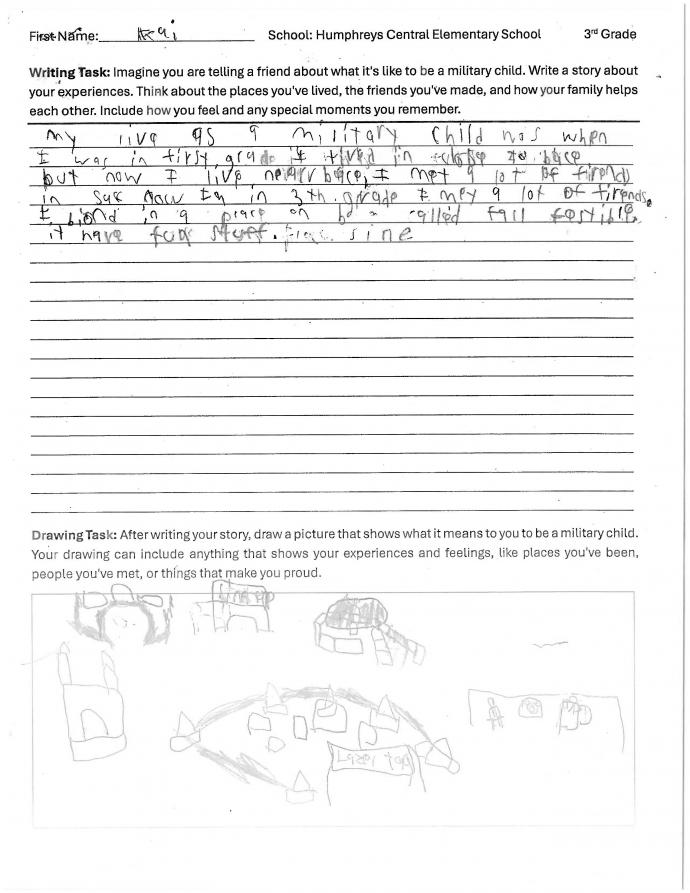 First Name: Kai School: Humphreys Central Elementary School 3rd Grade
Writing Task: Imagine you are telling a friend about what it's like to be a military child. Write a story about
your experiences. Think about the places you've lived, the friends you've made, and how your family helps
each other. Include how you feel and any special moments you remember.
My live as a military Child when
I was in first grade I lived in to bace
but now I live bace, I met a lot of firends
in Now in 3th. grade I mey a lot of firends,
I in a place on called fall
it have fun stuff. sine
Drawing Task: After writing your story, draw a picture that shows what it means to you to be a military child.
Your drawing can include anything that shows your experiences and feelings, like places you've been,
people you've met, or things that make you proud.